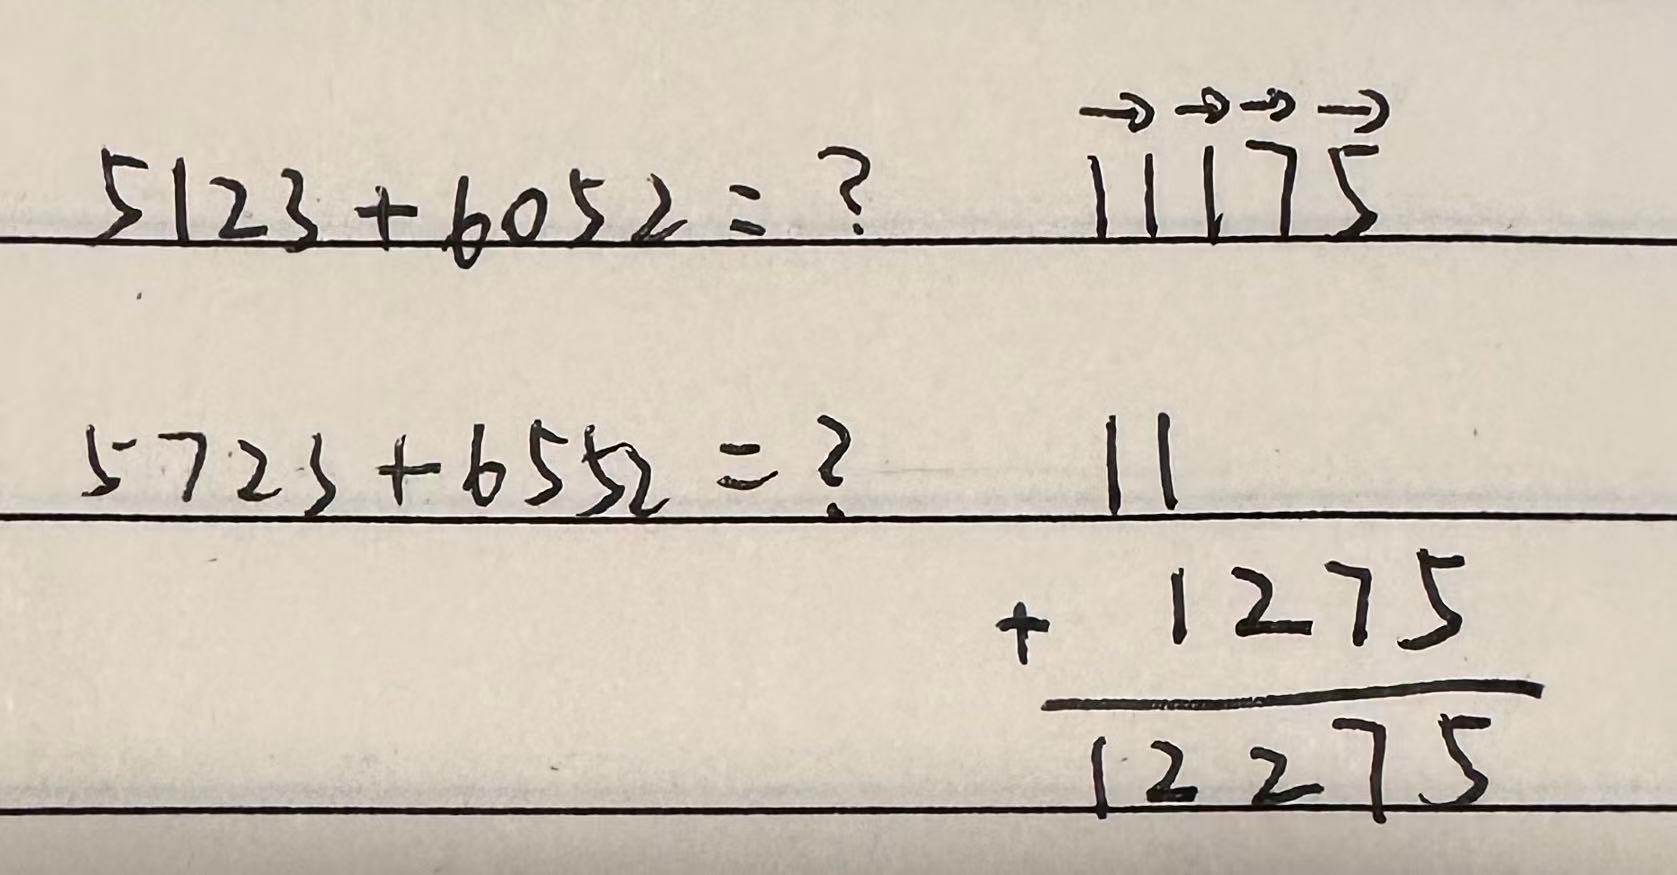 → → → →
5123 + 6052 = ? 11175
5723 + 6552 = ? 11
+ 1275
12275